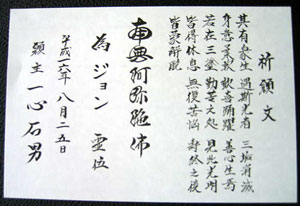 祈願文
其有衆生 遇斯光者 三垢消滅
身意柔軟 歓喜踊躍 善心生焉
若在三塗 勤苦之処 見此光明
皆得休息 無復苦悩 寿終之後
皆蒙解脱
南無阿弥陀佛
為ジョン 霊位
平成一六年 八月二五日
願主 一心石男